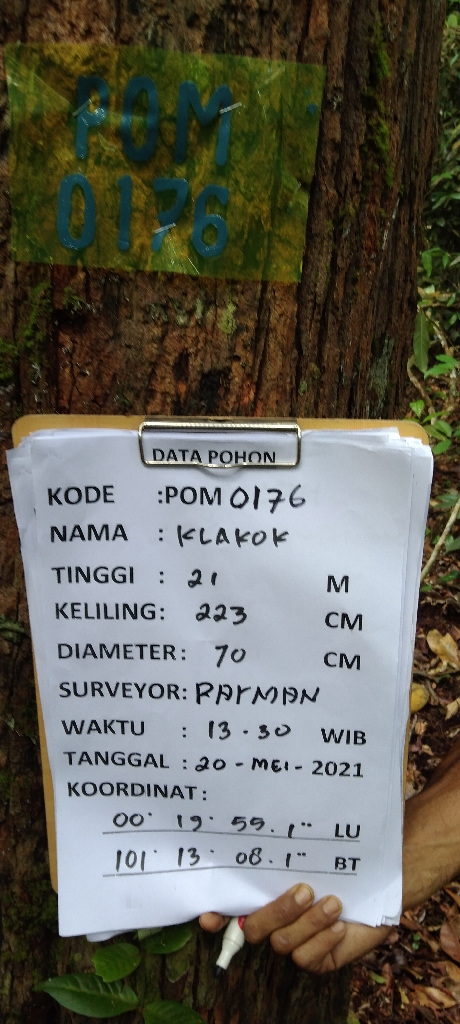 POM
0176
DATA POHON
KODE :POM 0176
NAMA : KLAKOK
TINGGI : 21 M
KELILING: 223 CM
DIAMETER: 70 CM
SURVEYOR: PAYMAN
WAKTU : 13-30 WIB
TANGGAL : 20 - MEI - 2021
KOORDINAT :
00° 19' 55.1" LU
101° 13' 08.1" BT